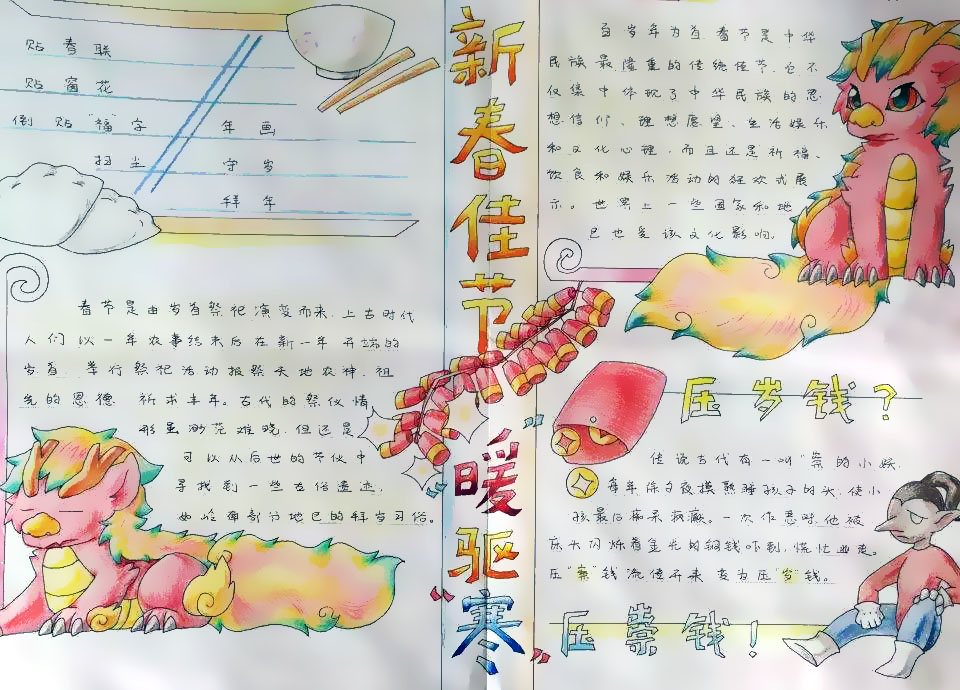 贴 春 联
贴 窗 花
倒 贴 “福” 字 年 画
扫 尘 守 岁
拜 年
春节是由岁首祭祀演变而来,上古时代
人们以一年农事结束后在新一年开端的
岁首,举行祭祀活动报祭天地众神、祖
先的恩德,祈求丰年。古代的祭仪情
形虽渺茫难晓,但还是
可以从后世的节仪中
寻找到一些古俗遗迹,
如岭南部分地巳的拜岁习俗。
新春佳节
“暖驱寒”
百岁年为首,春节是中华
民族最隆重的传统佳节,它不
仅集中体现了中华民族的思
想信仰、理想愿望、生活娱乐
和文化心理,而且还是祈福、
饮食和娱乐活动的狂欢式展
示。世界上一些国家和地
巳也受该文化影响。
压岁钱?
传说古代有一叫“祟的小妖,
每年除夕夜摸熟睡孩子的头,使小
孩最后痴呆疯癫。一次作恶时,他被
床头闪烁着金光的铜钱吓到,慌忙逃走。
压“祟”钱流传开来变为压“岁”钱。
压祟钱!